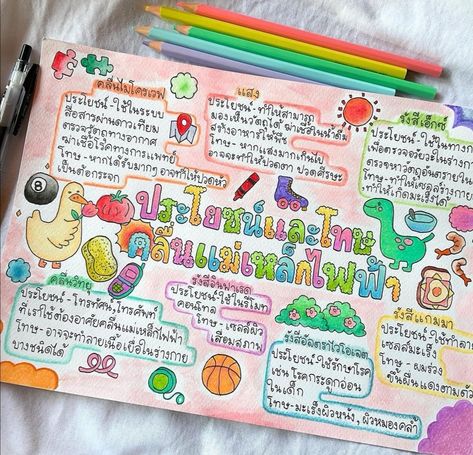 คลื่นไมโครเวฟ
ประโยชน์ - ใช้ในระบบ
สื่อสารผ่านดาวเทียม
ตรวจวัตถุทางอากาศ
ฆ่าเชื้อโรคทางการแพทย์
โทษ - หากได้รับมากๆ อาจทำให้ปวดหัว
เป็นต้อกระจก
แสง
ประโยชน์ - ทำให้สามารถ
มองเห็นวัตถุได้ ฆ่าเชื้อในน้ำดื่ม
โทษ - หากแสงมากเกินไป
อาจจะทำให้ปวดตา ปวดศีรษะ
รังสีเอ็กซ์
ประโยชน์ - ใช้ในทางก
เพื่อตรวจอวัยวะในร่างก
ตรวจหาวัตถุอันตรายใน
โทษ - ทำให้เซลล์ร่างกาย
ทำให้เกิดมะเร็งได้
ประโยชน์และโทษ
คลื่นแม่เหล็กไฟฟ้า
คลื่นวิทยุ
ประโยชน์ - โทรทัศน์, โทรศัพท์
ที่เราใช้ต้องอาศัยคลื่นแม่เหล็กไฟฟ้า
โทษ - อาจจะทำลายเนื้อเยื่อในร่างกาย
บางชนิดได้
รังสีอินฟาเรด
ประโยชน์ - ใช้ในรีโมท
คอนโทล
โทษ - เซลล์ผิว
เสื่อมสภาพ
รังสีอัลตราไวโอเลต
ประโยชน์ - ใช้รักษาโรค
เช่น โรคกระดูกอ่อน
ในเด็ก
โทษ - มะเร็งผิวหนัง, ผิวหมองคล้ำ
รังสีแกมมา
ประโยชน์ - ใช้ทำลาย
เซลล์มะเร็ง
โทษ - ผมร่วง
ขึ้นผื่นแดงตามตัว
8